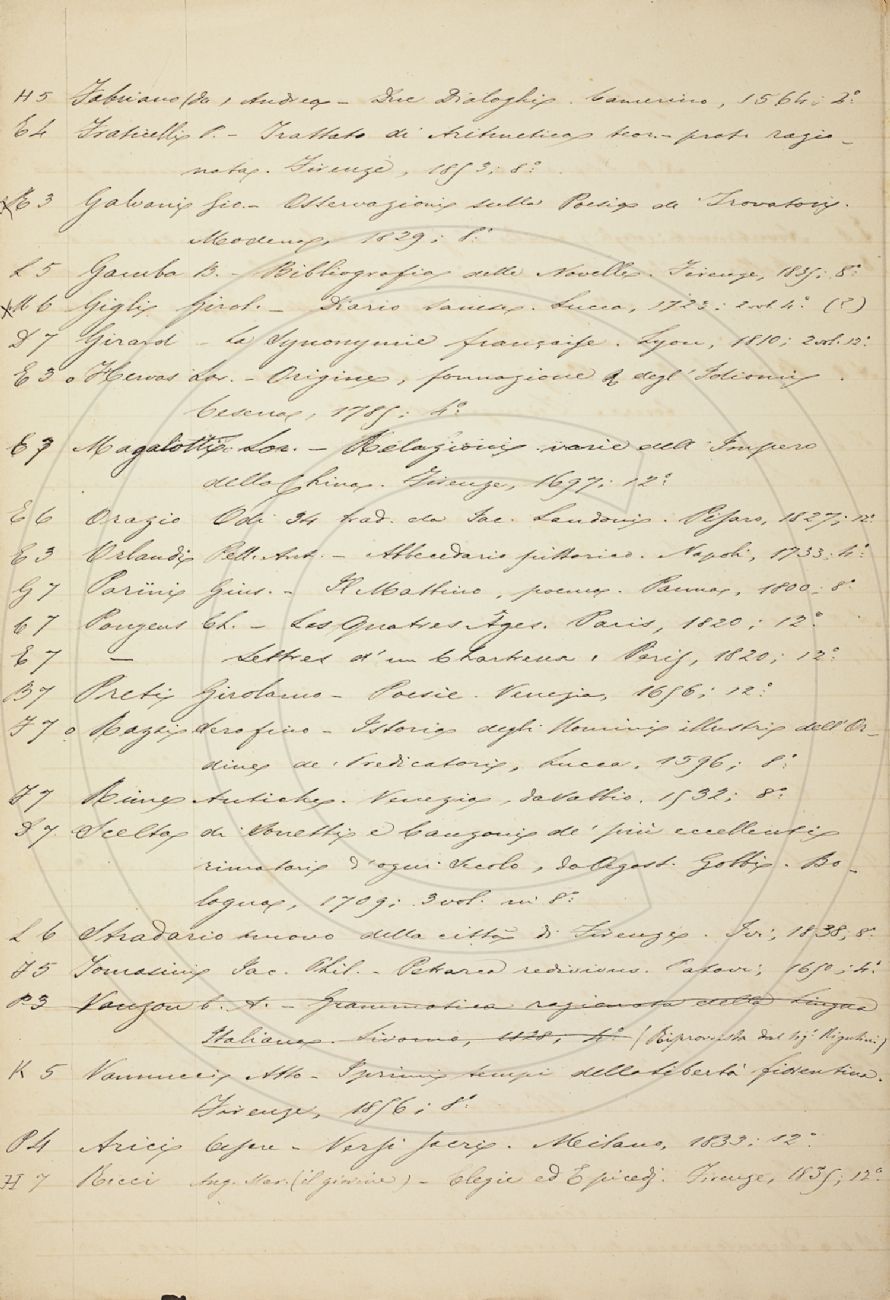 H 5 Fabriano (da, Andrea - Due Dialoghi. Camerino, 1564; 4°
E 4 Fraticelli P. - Trattato di Aritmetica teor.-prat. ragio-
nata. Firenze, 1853; 8°
x E 3 Galvani Gio. - Osservazioni sulla Poesia de' Trovatori.
Modena, 1829; 8°
L 5 Gamba B. - Bibliografia delle Novelle. Firenze, 1835; 8°
x M 6 Gigli Girol. - Diario Sanese. Lucca, 1723; 2 vol. 4° (2)
D 7 Girard - La Synonymie françaife. Lyon, 1810; 2 vol. 12°
E 3 o Hervas Lor. - Origine, formazione & degl' Idiomi.
Cesena, 1785; 4°
E 7 Magalotti Lor. - Relazioni varie dell' Impero
della China. Firenze, 1697; 12°
E 6 Orazio Odi 34 trad. da Iac. Landoni. Pesaro, 1827; 12°
E 3 Orlandi Pell. Ant. - Abbecedario pittorico. Napoli, 1733; 4°
G 7 Parini Gius. - Il Mattino, poema. Parma, 1800; 8°
C 7 Pougens Ch. - Les Quatres Âges. Paris, 1820; 12°
E 7 — Lettres d'un Chartreux. Paris, 1820; 12°
B 7 Preti Girolamo - Poesie. Venezia, 1656; 12°
F 7 o Razzi Serafino - Istoria degli Uomini illustri dell' Or-
dine de' Predicatori, Lucca, 1596; 8°
F 7 Rime Antiche. Venezia, da Sabbio. 1532; 8°
D 7 Scelta di Sonetti e Canzoni de' più eccellenti
rimatori d'ogni Secolo, da Agost. Gobbi. Bo-
logna, 1709; 3 vol. in 8°
L 6 Stradario nuovo della città di Firenze. Ivi, 1838, 8°
F 5 Tomasini Iac. Phil. - Petrarca redivivus. Patavi, 1650; 4°
P 3 Vanzon C. A. - Grammatica ragionata della Lingua
Italiana. Livorno, 1828; 4° (Riprovista dal Sig. Rigutini)
K 5 Vannucci Atto - I primi tempi della libertà fiorentina.
Firenze, 1856; 8°
P 4 Arici Cesare - Versi sacri. Milano, 1833; 12°
H 7 Ricci Ang. Mar. (il giovine) - Elegie ed Epicedi. Firenze, 1835; 12°